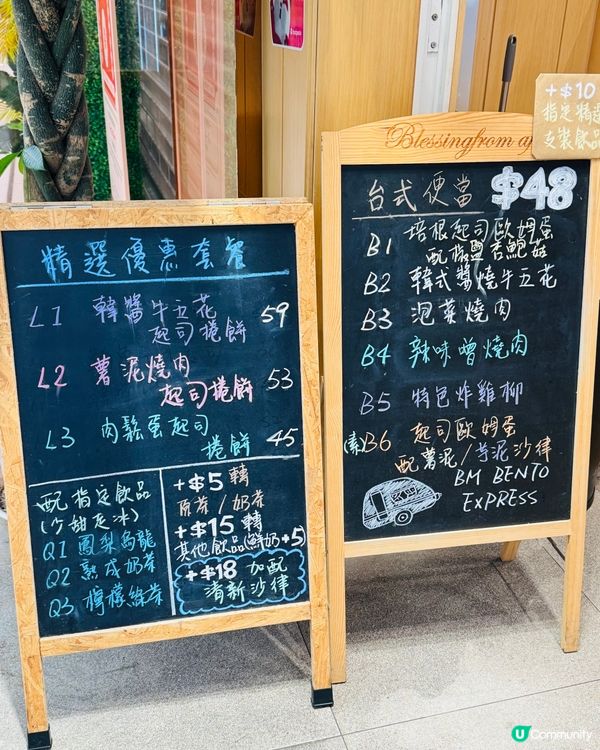 精選優惠套餐
L1 韓醬牛五花
起司捲餅 59
L2 薯泥燒肉
起司捲餅 53
L3 肉鬆蛋起司
捲餅 45
配指定飲品
(少甜灰冰)
Q1 鳳梨烏龍
Q2 熟成奶茶
Q3 檸檬綠茶
+$5 轉
原茶/奶茶
+$15 轉
其他飲品鮮奶+5
+$18 加配
清新沙律
Blessingfrom
+$10
指定精選
支裝飲品
台式便當 $48
B1 培根起司歐姆蛋
配椒鹽杏鮑菇
B2 韓式醬燒牛五花
B3 泡菜燒肉
B4 辣味噌燒肉
B5 特色炸雞柳
(素)B6 起司歐姆蛋
配薯泥/芋泥沙律
BM BENTO
EXPRESS
U Community